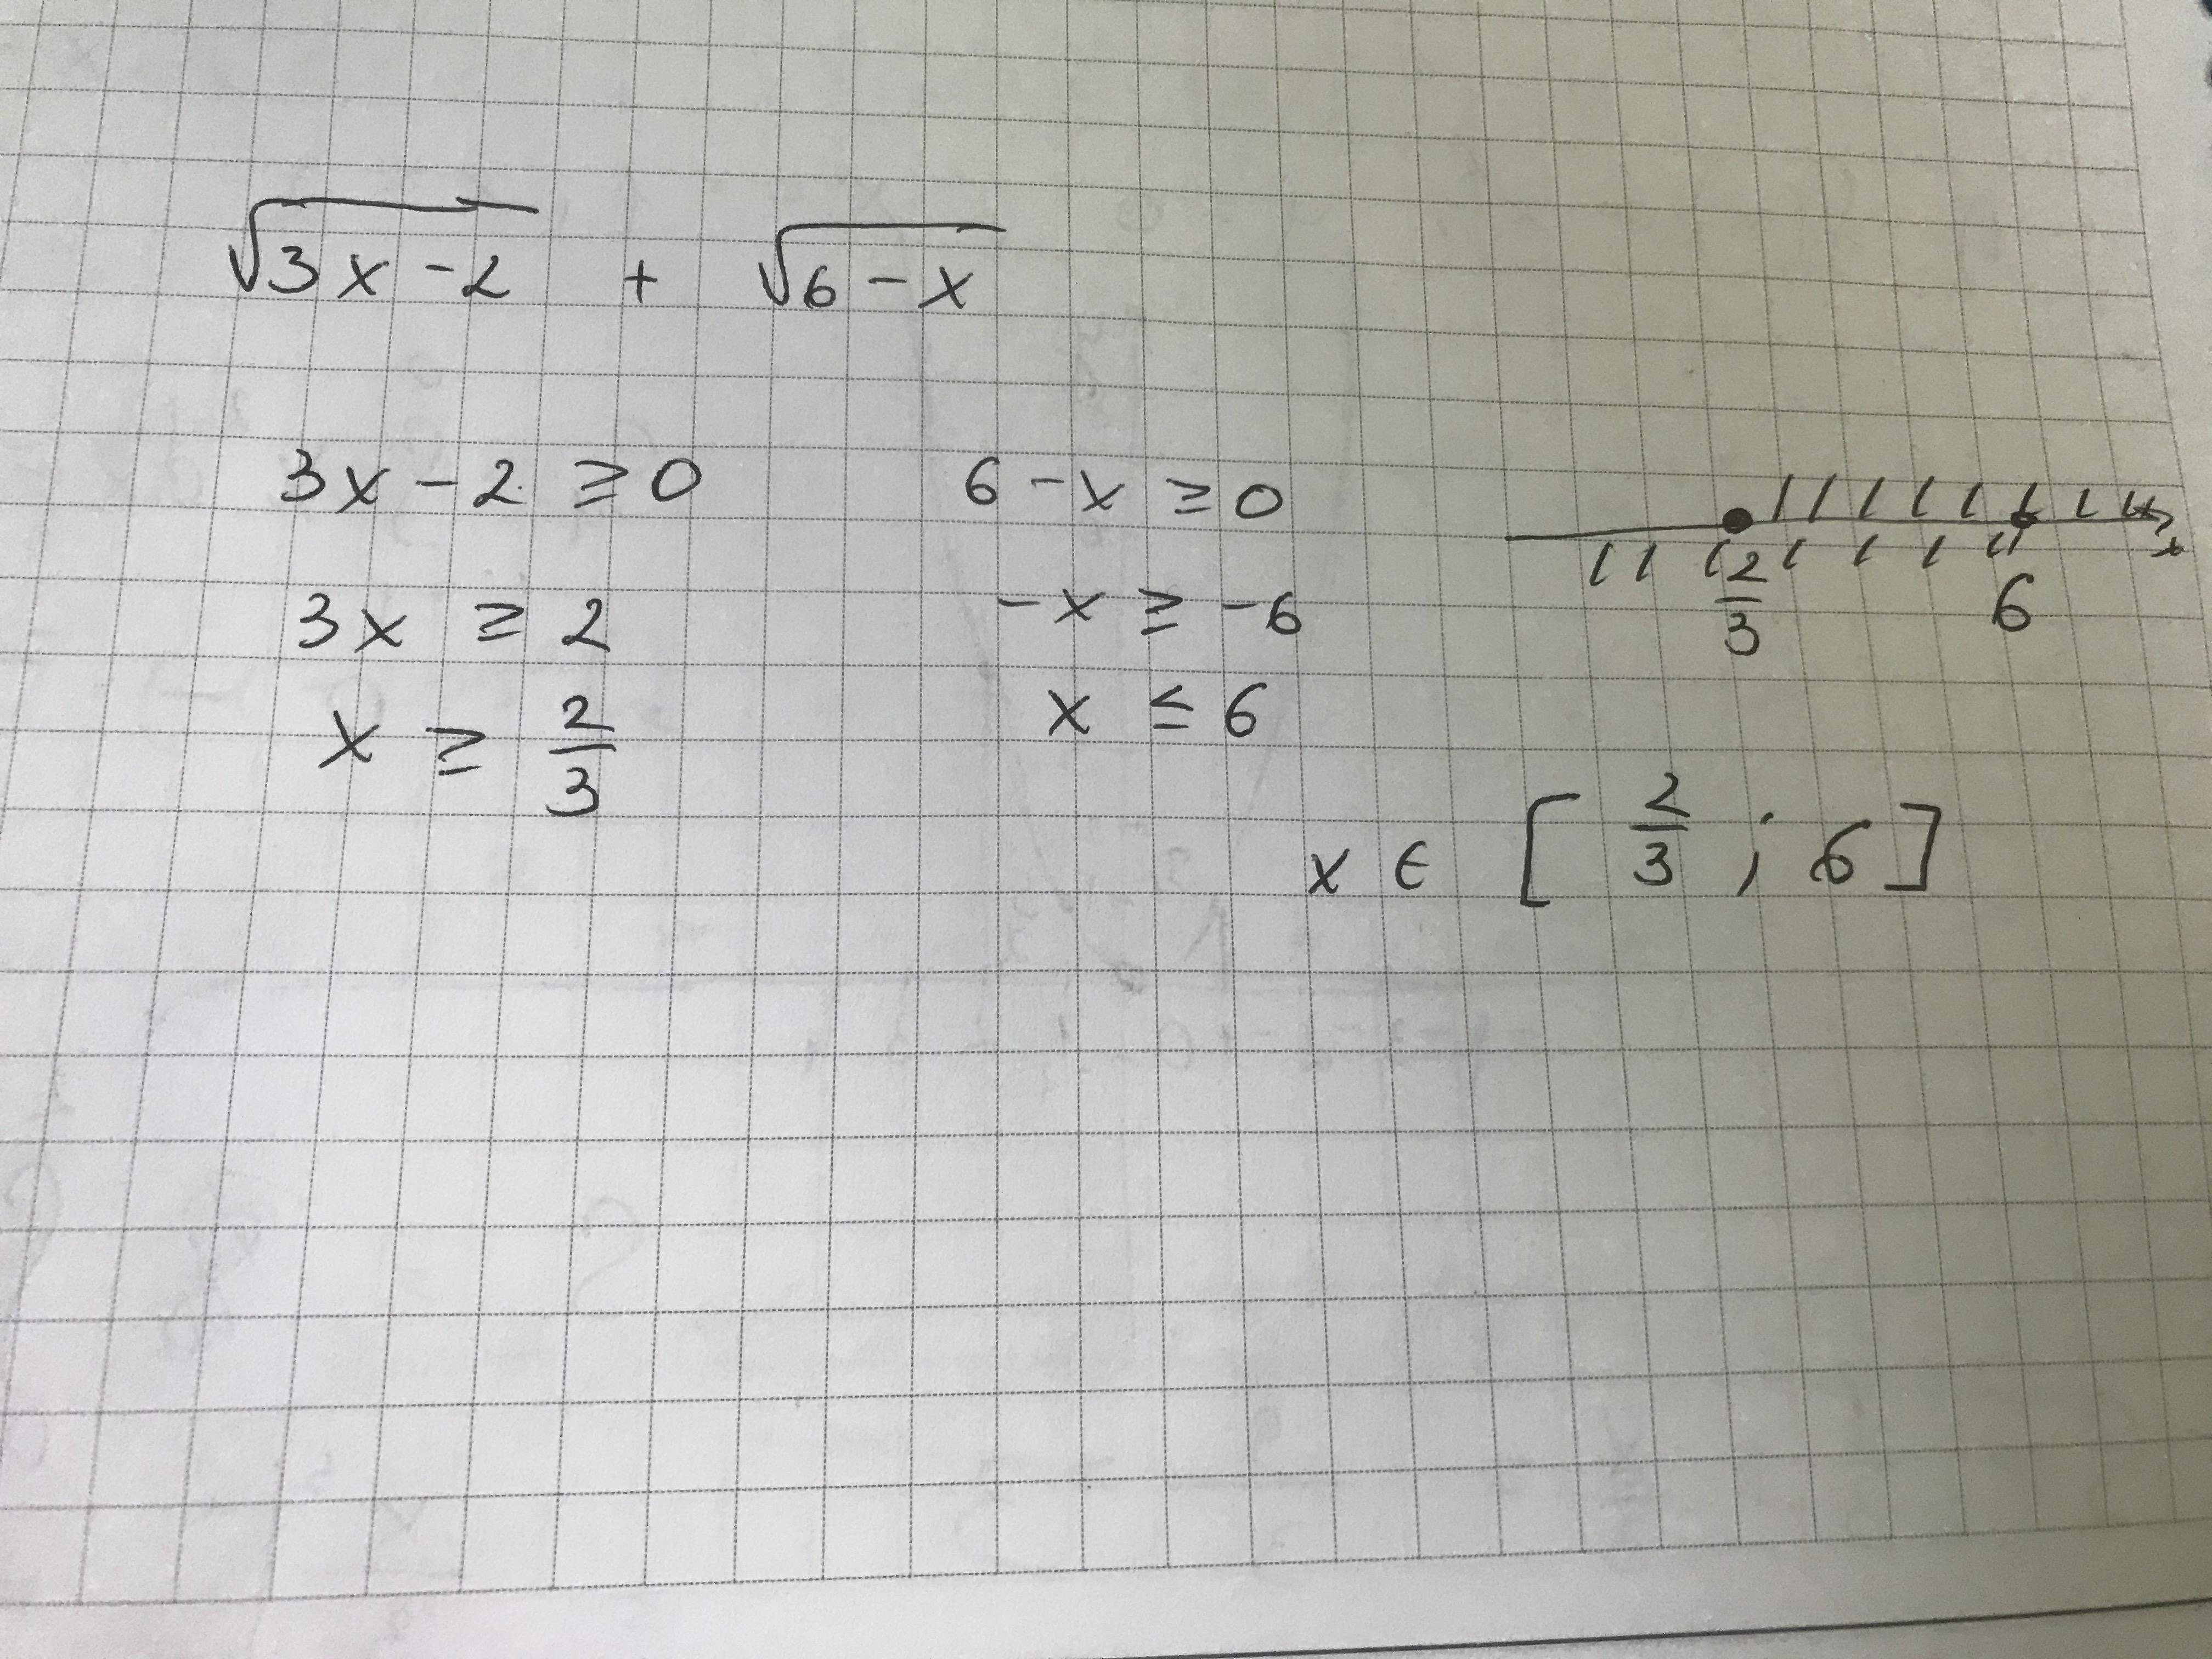 √3x-2 + √6-x
3x-2 ≥ 0
3x ≥ 2
x ≥ 2/3
6-x ≥ 0
-x ≥ -6
x ≤ 6
2/3 6 x
x ∈ [2/3 ; 6]